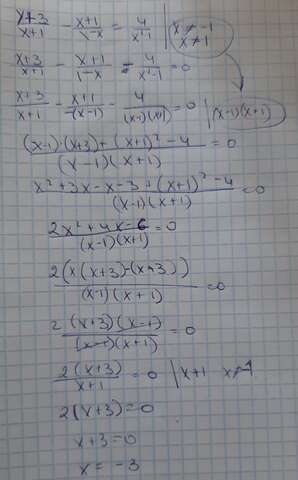 (x+3)/(x+1) - (x+1)/(1-x) = 4/(x²-1) | x ≠ -1 x ≠ 1
(x+3)/(x+1) - (x+1)/(1-x) - 4/(x²-1) = 0
(x+3)/(x+1) - (x+1)/(-(x-1)) - 4/((x-1)(x+1)) = 0 | (x-1)(x+1)
((x-1)·(x+3)+(x+1)²-4)/((x-1)(x+1)) = 0
(x²+3x-x-3+(x+1)²-4)/((x-1)(x+1)) = 0
(2x²+4x-6)/((x-1)(x+1)) = 0
2(x(x+3)-(x+3))/((x-1)(x+1)) = 0
2(x+3)(x-1)/((x-1)(x+1)) = 0
2(x+3)/(x+1) = 0 | x+1
2(x+3)=0
x+3=0
x = -3